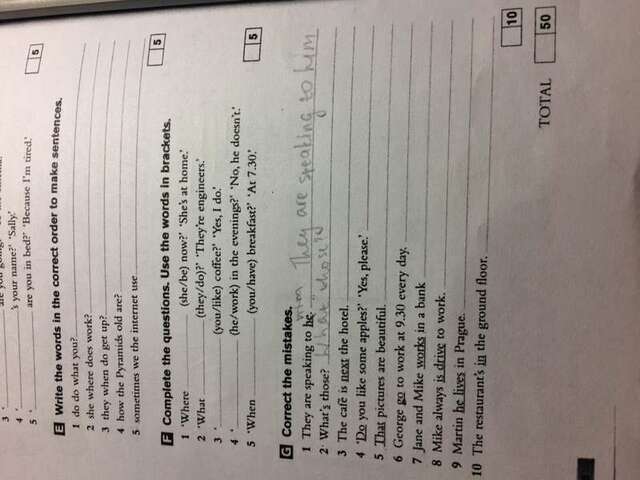 3 '
4 '                's your name?' 'Sally.'
5 '                are you in bed?' 'Because I'm tired.'
5
E Write the words in the correct order to make sentences.
1 do do what you?
2 she where does work?
3 they when do get up?
4 how the Pyramids old are?
5 sometimes we the internet use
5
F Complete the questions. Use the words in brackets.
1 'Where ____ (she/be) now?' 'She's at home.'
2 'What ____ (they/do)?' 'They're engineers.'
3 ' ____ (you/like) coffee?' 'Yes, I do.'
4 ' ____ (he/work) in the evenings?' 'No, he doesn't.'
5 'When ____ (you/have) breakfast?' 'At 7.30.'
5
G Correct the mistakes.
1 They are speaking to he. They are speaking to him
2 What's those? What those
3 The café is next the hotel.
4 'Do you like some apples?' 'Yes, please.'
5 That pictures are beautiful.
6 George go to work at 9.30 every day.
7 Jane and Mike works in a bank
8 Mike always is drive to work.
9 Martin he lives in Prague.
10 The restaurant's in the ground floor.
10
TOTAL 50